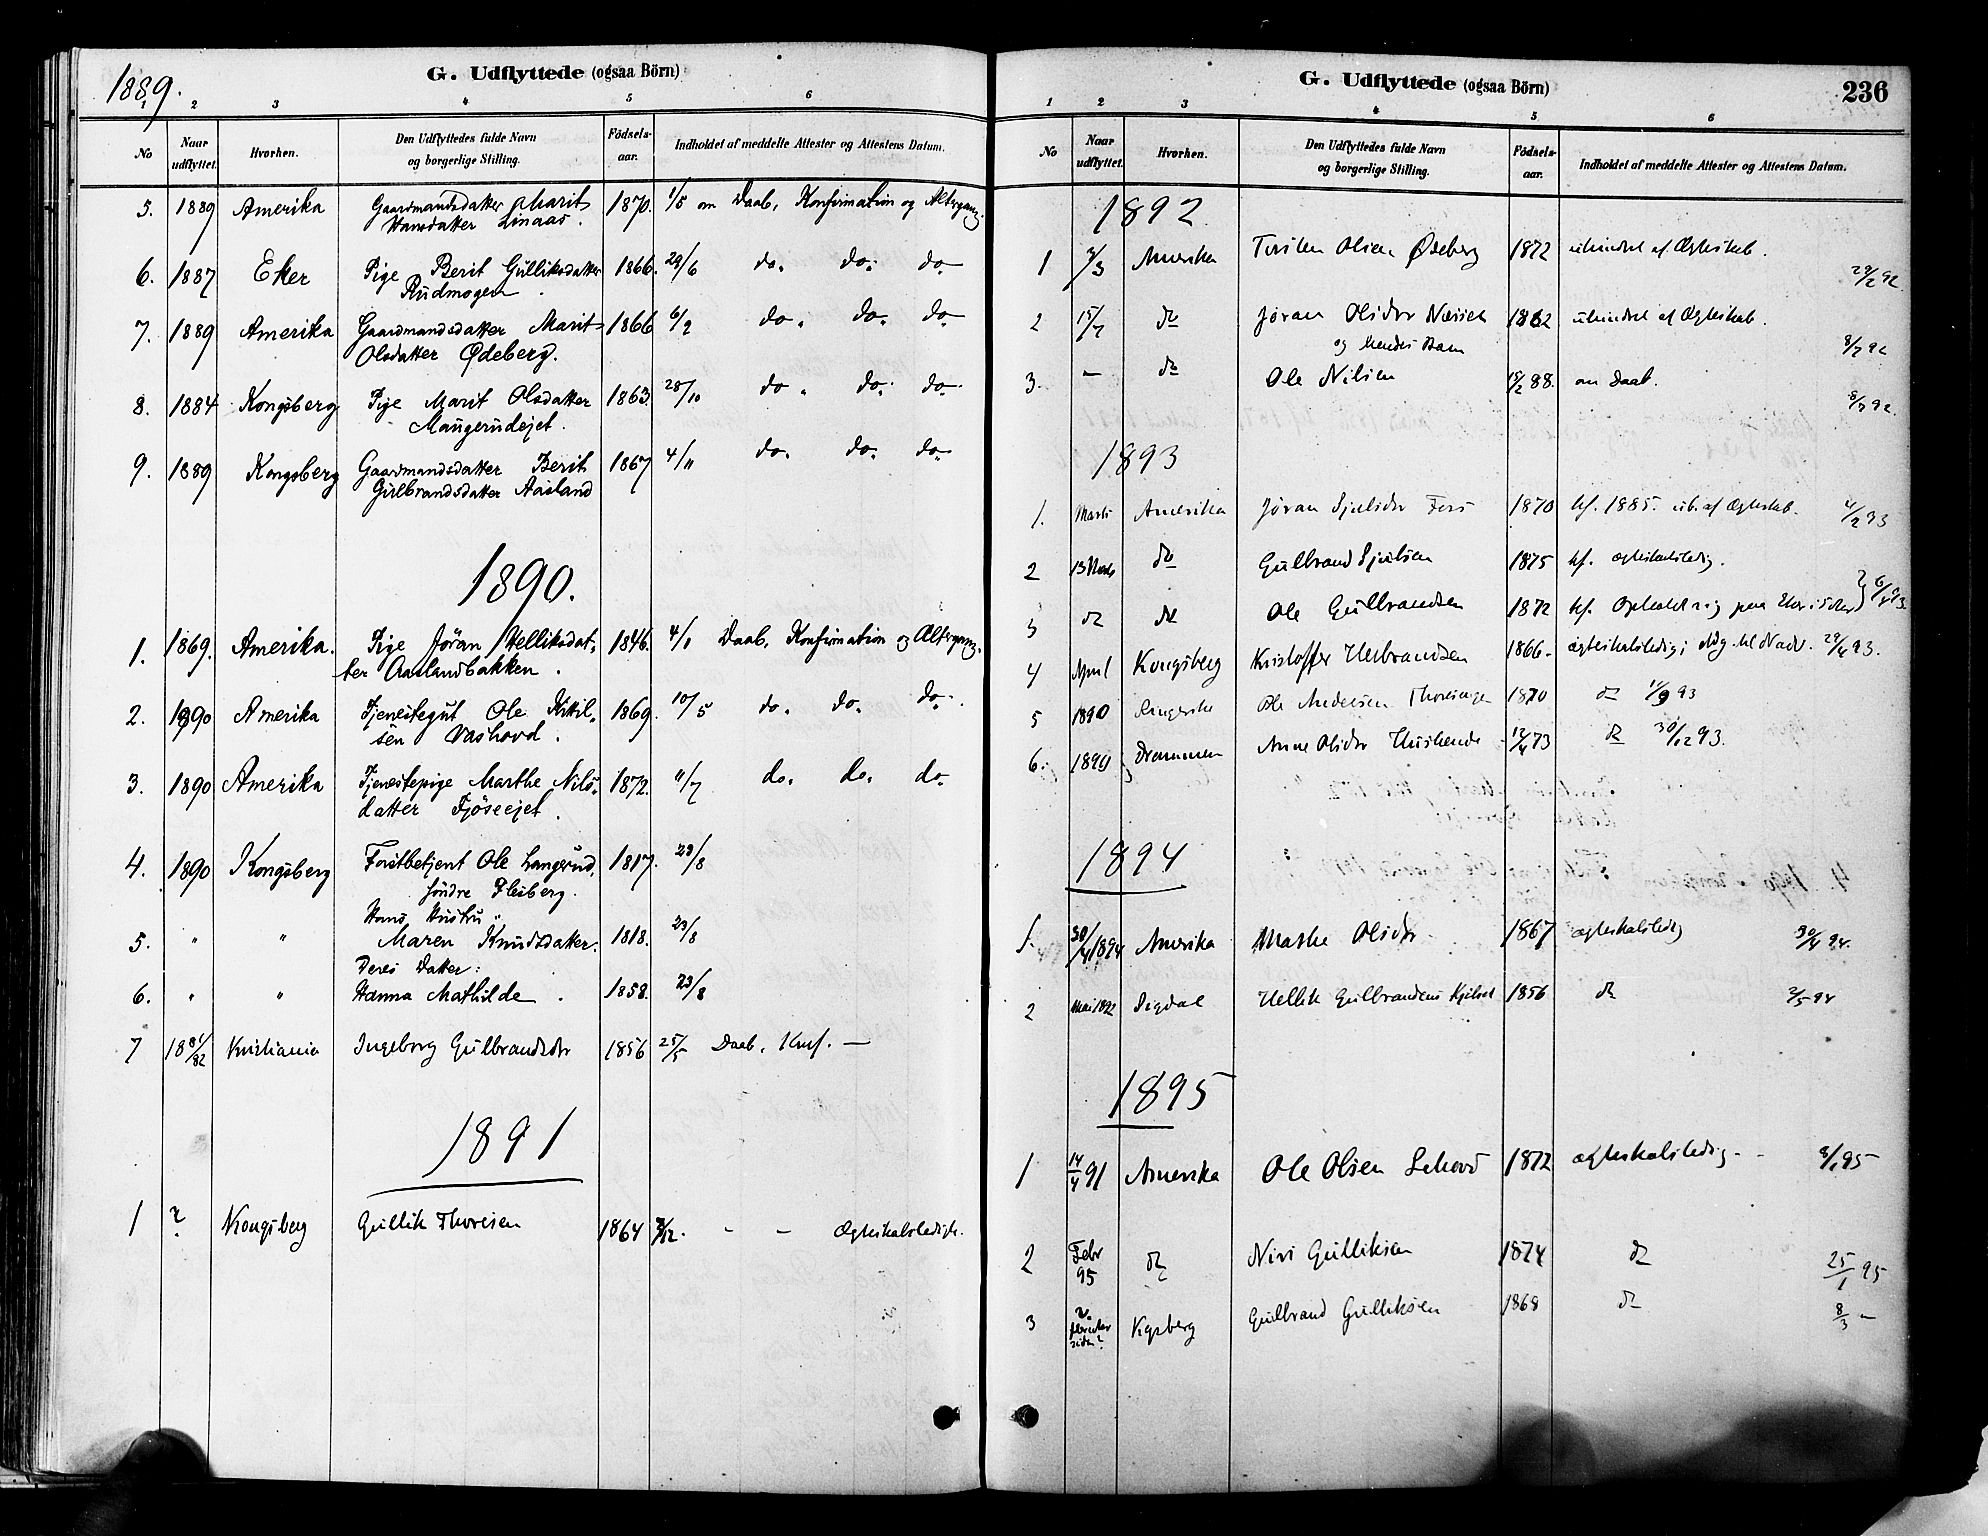 1889.
G. Udflyttede (ogsaa Börn)
1 2 3 4 5 6
No Naar udflyttet. Hvorhen. Den Udflyttedes fulde Navn og borgerlige Stilling. Födsels-aar. Indholdet af meddelte Attester og Attestens Datum.
5. 1889 Amerika Gaardmandsdatter Marit 1870. 1/5 om Daab, Konfirmation og Altergang.
Hansdatter Linaas.
6. 1887 Eker Pige Berit Gulliksdatter 1866. 29/6 do. do. do.
Rudmogen.
7. 1889 Amerika Gaardmandsdatter Marit 1866 6/9 do. do. do.
Olsdatter Ødeberg.
8. 1884 Kongsberg Pige Marit Olsdatter 1863. 28/10 do. do. do.
Maugerudejet.
9. 1889 Kongsberg Gaardmandsdatter Berit 1867 4/11 do. do. do.
Gulbrandsdatter Aasland
1890.
1. 1869. Amerika. Pige Jöran Helliksdat- 1846. 4/1 Daab, Konfirmation og Altergang.
ter Aaslandbakken.
2. 1890 Amerika Tjenestegut Ole Kitil- 1869. 10/5 do. do. do.
sen Vashovd.
3. 1890 Amerika Tjenestepige Marthe Nils- 1872. 11/7 do. do. do.
datter Fjöseejet.
4. 1890 Kongsberg Forstbetjent Ole Langerud, 1817. 23/8
söndre Flesberg.
Hans Hustru
5. " " Maren Knudsdatter. 1818. 23/8
Deres Datter:
6. " " Hanna Mathilde. 1858. 23/8
7 1881/82 Kristiania Ingeborg Gulbrandsdtr 1856 25/5 Daab, Konf. —
1891
1 ? Kongsberg Gullik Thoresen 1864 3/12. - - Ægteskabsledigh.
G. Udflyttede (ogsaa Börn)
236
1 2 3 4 5 6
No Naar udflyttet. Hvorhen. Den Udflyttedes fulde Navn og borgerlige Stilling. Födsels-aar. Indholdet af meddelte Attester og Attestens Datum.
1892.
1 2/3 Amerika Torsten Olsen Ødeberg 1872 uhindret af Ægteskab. 29/2 92
2 15/7 do Jøran Olsdtr 1862 uhindret af Ægteskab. 8/7 92
og hendes Barn
3. — do Ole Nilsen 15/2 88. om Daab. 8/7 92.
1893
1. Marts Amerika Jøran Sjulsdtr Fors 1870 kf. 1885. uh. af Ægteskab. 4/2 93
2 13 Marts do Gulbrand Sjulsen 1875 kf. ægteskabsledig.
3 do do Ole Gulbrandsen 1872 kf.
4 April Kongsberg Kristoffer Herbrandsen 1866. ægteskabsledig; Adg. til Nadv. 29/4 93.
5 1890 Ringerike Ole Andersen 1870 do 11/9 93
6. 1890 Drammen Anne Olsdtr 12/4 73 do 30/12 93.
1894
1. 30/4 1894 Amerika Mathe Olsdtr 1867 ægteskabsledig 30/4 94.
2 Mai 1892 Sigdal Hellik Gulbrandsen 1856 do 2/5 94
1895
1 14/4 91 Amerika Ole Olsen Lehovd 1872 ægteskabsledig - 8/1 95
2 Febr 95 do Niri Gulliksen 1874 do 25/1 95
3 Kgsberg Gulbrand Gulliksen 1868 do 8/3 —